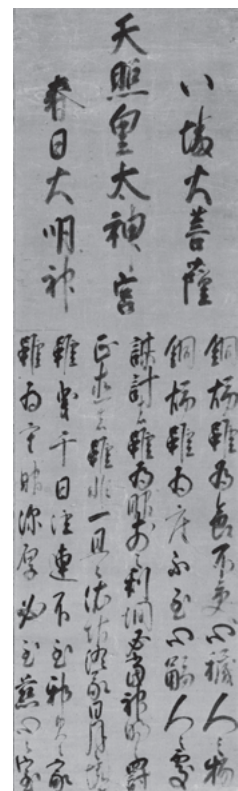 八幡大菩薩
天照皇太神宮
春日大明神
銅焔雖為食不受心穢人之物
銅焔雖為座不至心濁人之處
謀計者雖為眼前之利潤必當神明之罰
正直者雖非一旦之依怙終蒙日月憐
雖曳千日注連不至邪見之家
雖為重服深厚必至慈悲之室